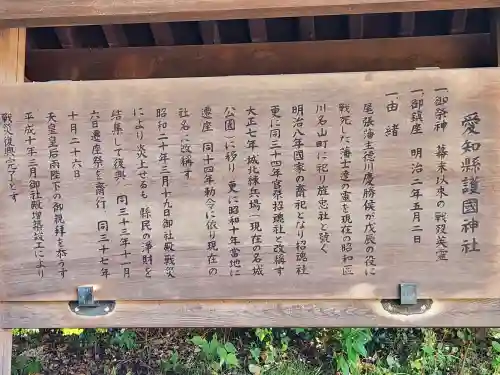 愛知縣護國神社
一、御祭神　幕末以来の戦歿英霊
一、御鎮座　明治二年五月二日
一、由緒
尾張藩主徳川慶勝侯が戊辰の役に
戦死した藩士達の霊を現在の昭和区
川名山町に祀り旌忠社と號く
明治八年國家の斎祀となり招魂社
更に同三十四年官祭招魂社と改稱す
大正七年城北練兵場（現在の名城
公園）に移り　更に昭和十年當地に
遷座　同十四年勅令に依り現在の
社名に改稱す
昭和二十年三月十九日御社殿戦災
により炎上せるも　縣民の浄財を
結集して復興　同三十三年十一月
六日遷座祭を斎行　同三十七年
十月二十六日
天皇皇后両陛下の御親拝を仰ぐ
平成十年三月御社殿増築竣工により
戦災復興完了とす